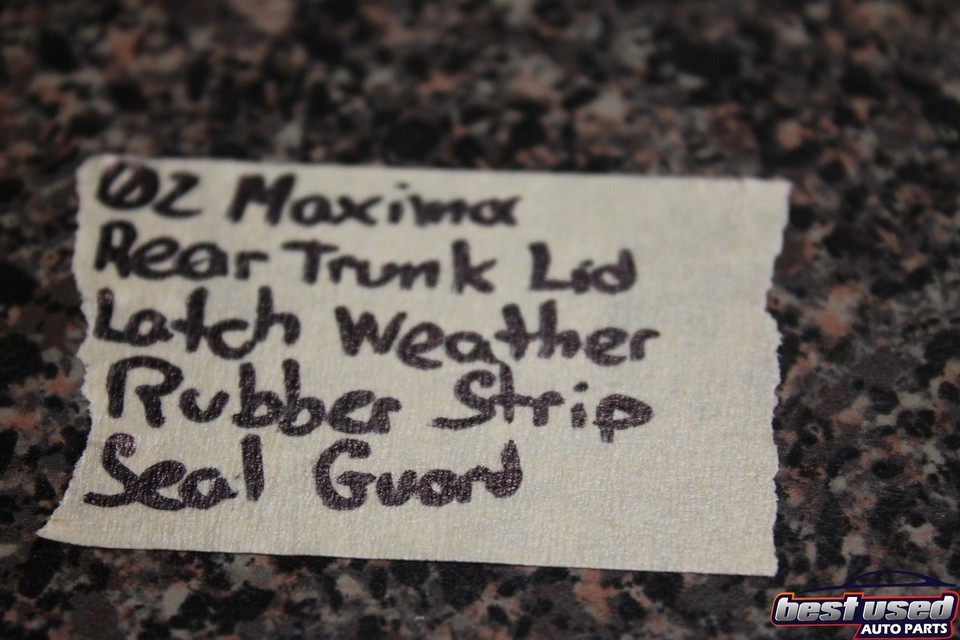 02 Maxima
Rear Trunk Lid
Latch Weather
Rubber Strip
Seal Guard
best used
AUTO PARTS